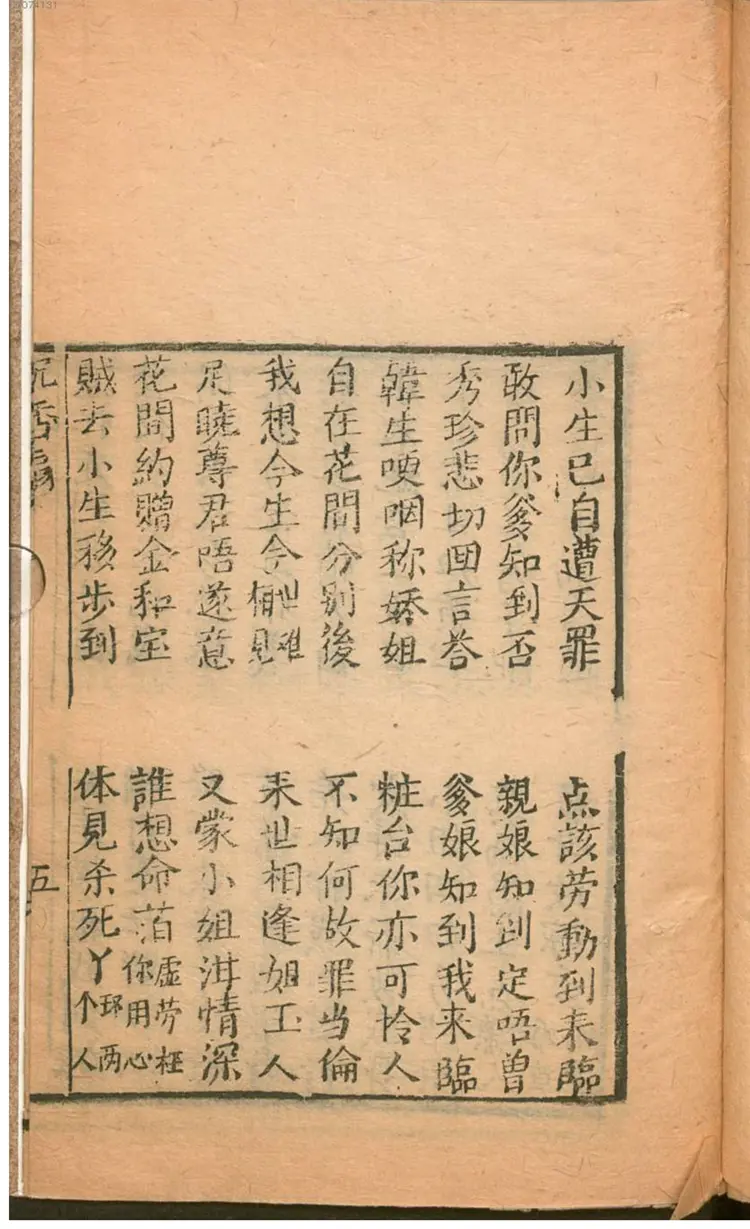 小生已自遭天罪
点該劳動到来臨
敢問你爹知到否
親娘知到定唔曾
秀珍悲切囬言答
爹娘知到我来臨
韓生哽咽称娇姐
粧台你亦可怜人
自在花間分别後
不知何故罪当倫
我想今生今世难相見
来世相逢姐玉人
足曉尊君唔遂意
又蒙小姐注情深
花間約贈金和宝
誰想命泊虚劳枉你用心
賊去小生移步到
体見杀死丫环两个人
五